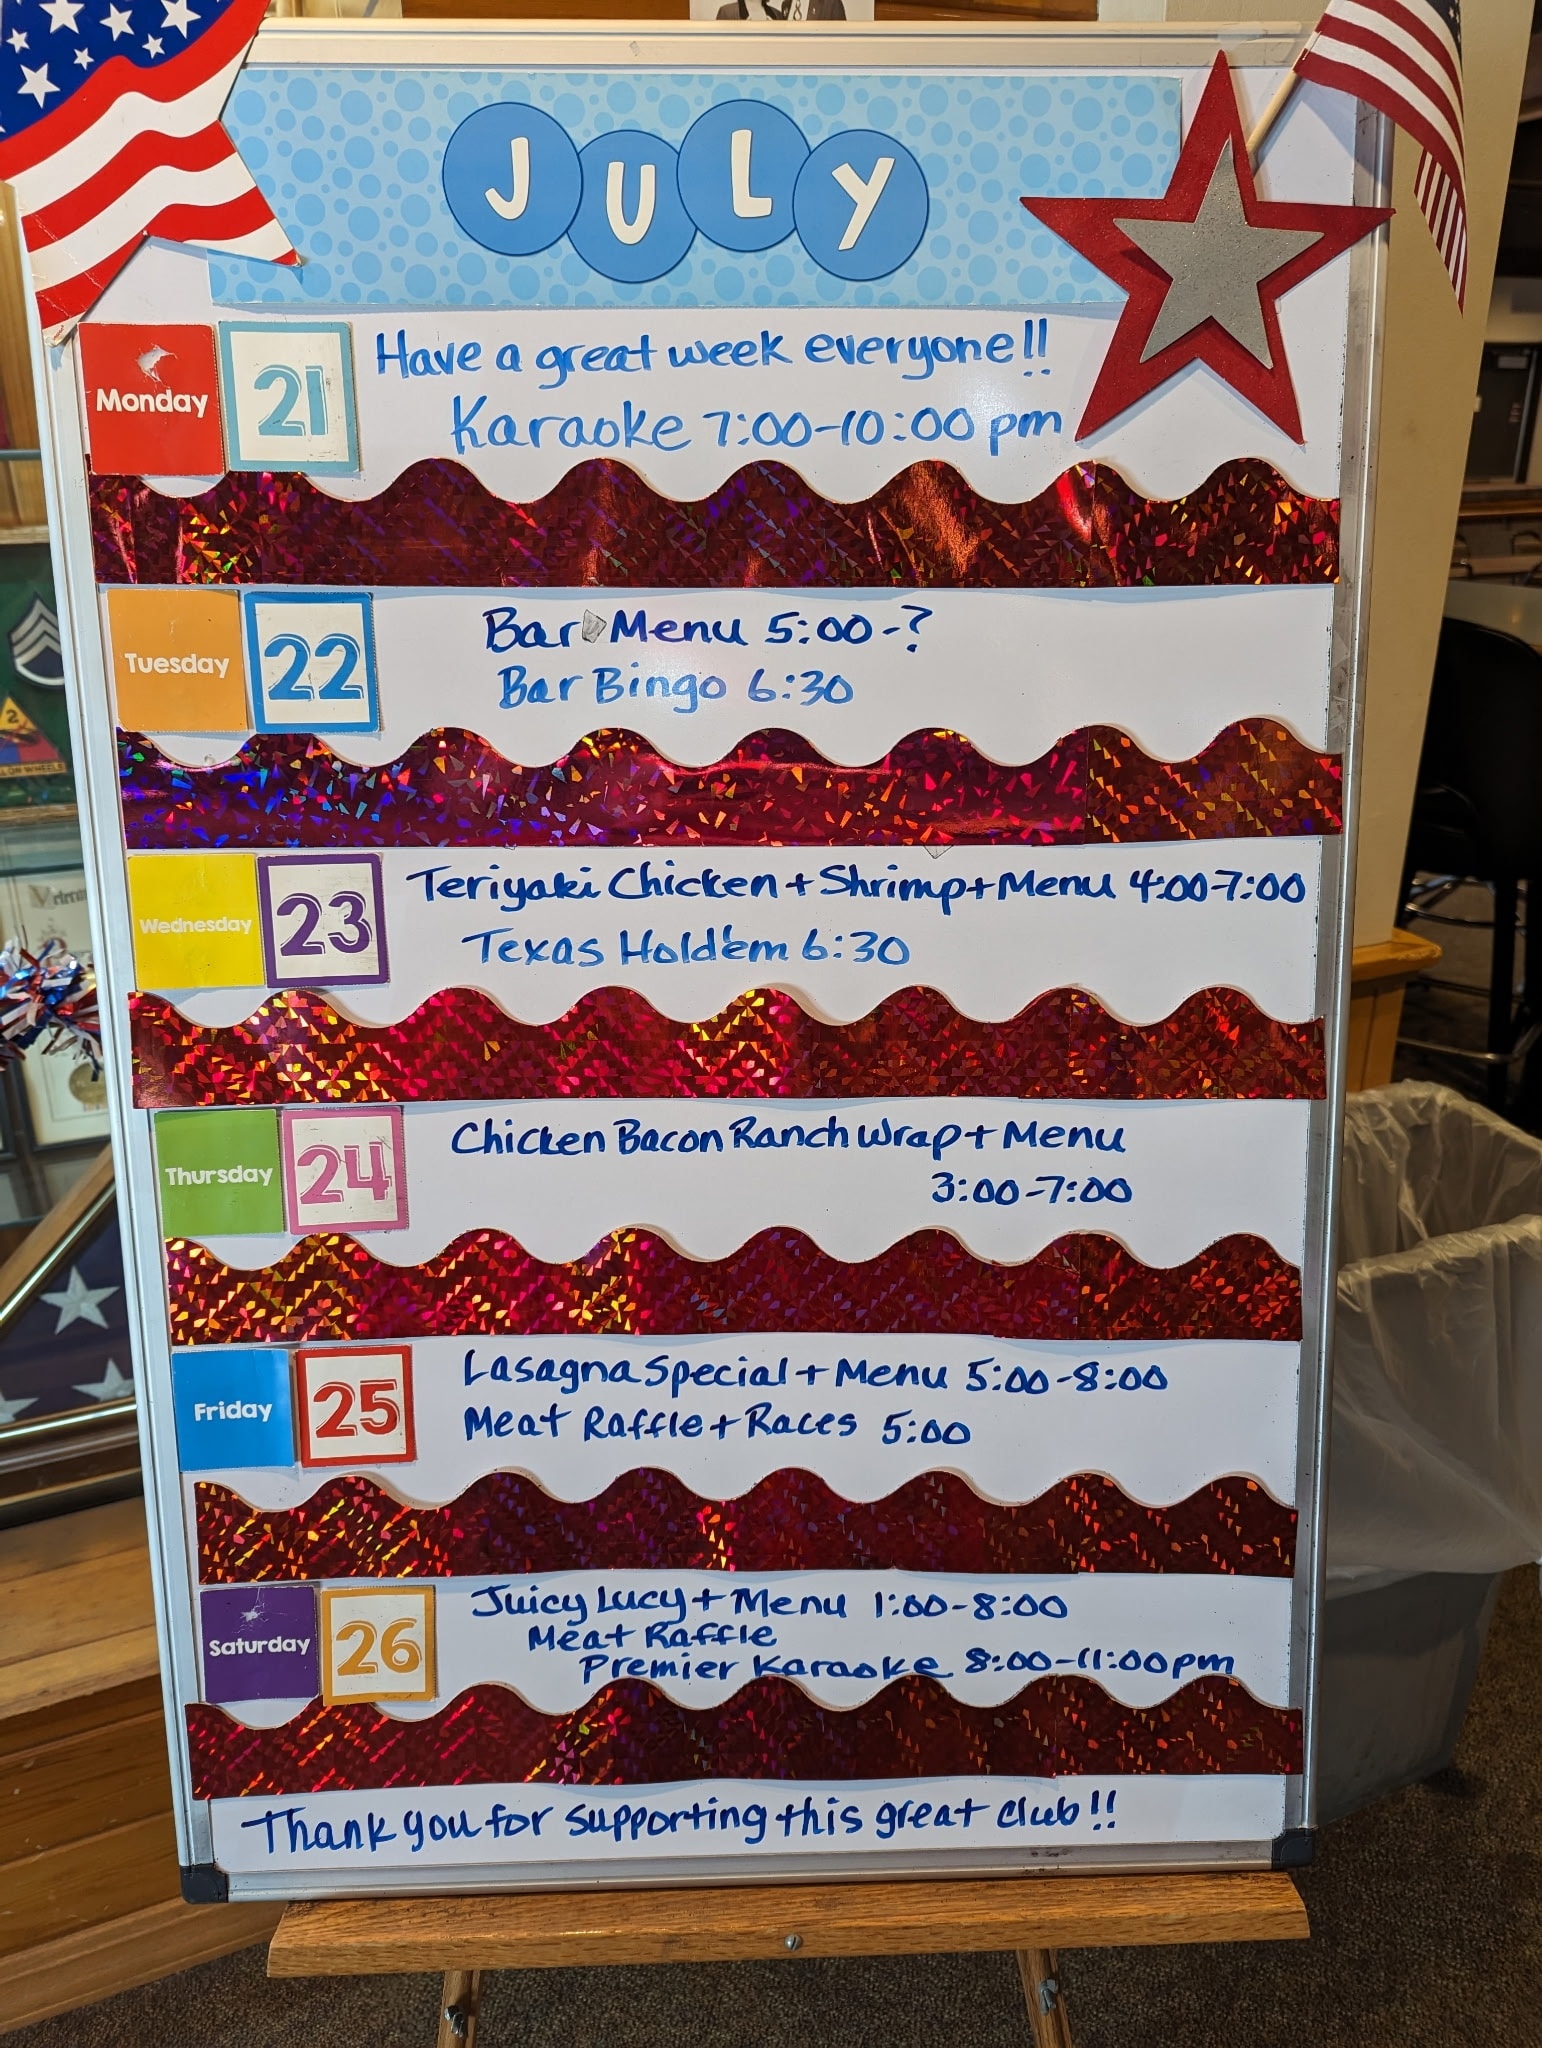 JULY
Monday 21 Have a great week everyone!!
Karaoke 7:00-10:00 pm
Tuesday 22 Bar Menu 5:00-?
Bar Bingo 6:30
Wednesday 23 Teriyaki Chicken + Shrimp + Menu 4:00-7:00
Texas Hold'em 6:30
Thursday 24 Chicken Bacon Ranch Wrap + Menu
3:00-7:00
Friday 25 Lasagna Special + Menu 5:00-8:00
Meat Raffle + Races 5:00
Saturday 26 Juicy Lucy + Menu 1:00-8:00
Meat Raffle
Premier Karaoke 8:00-11:00pm
Thank you for supporting this great club!!
2